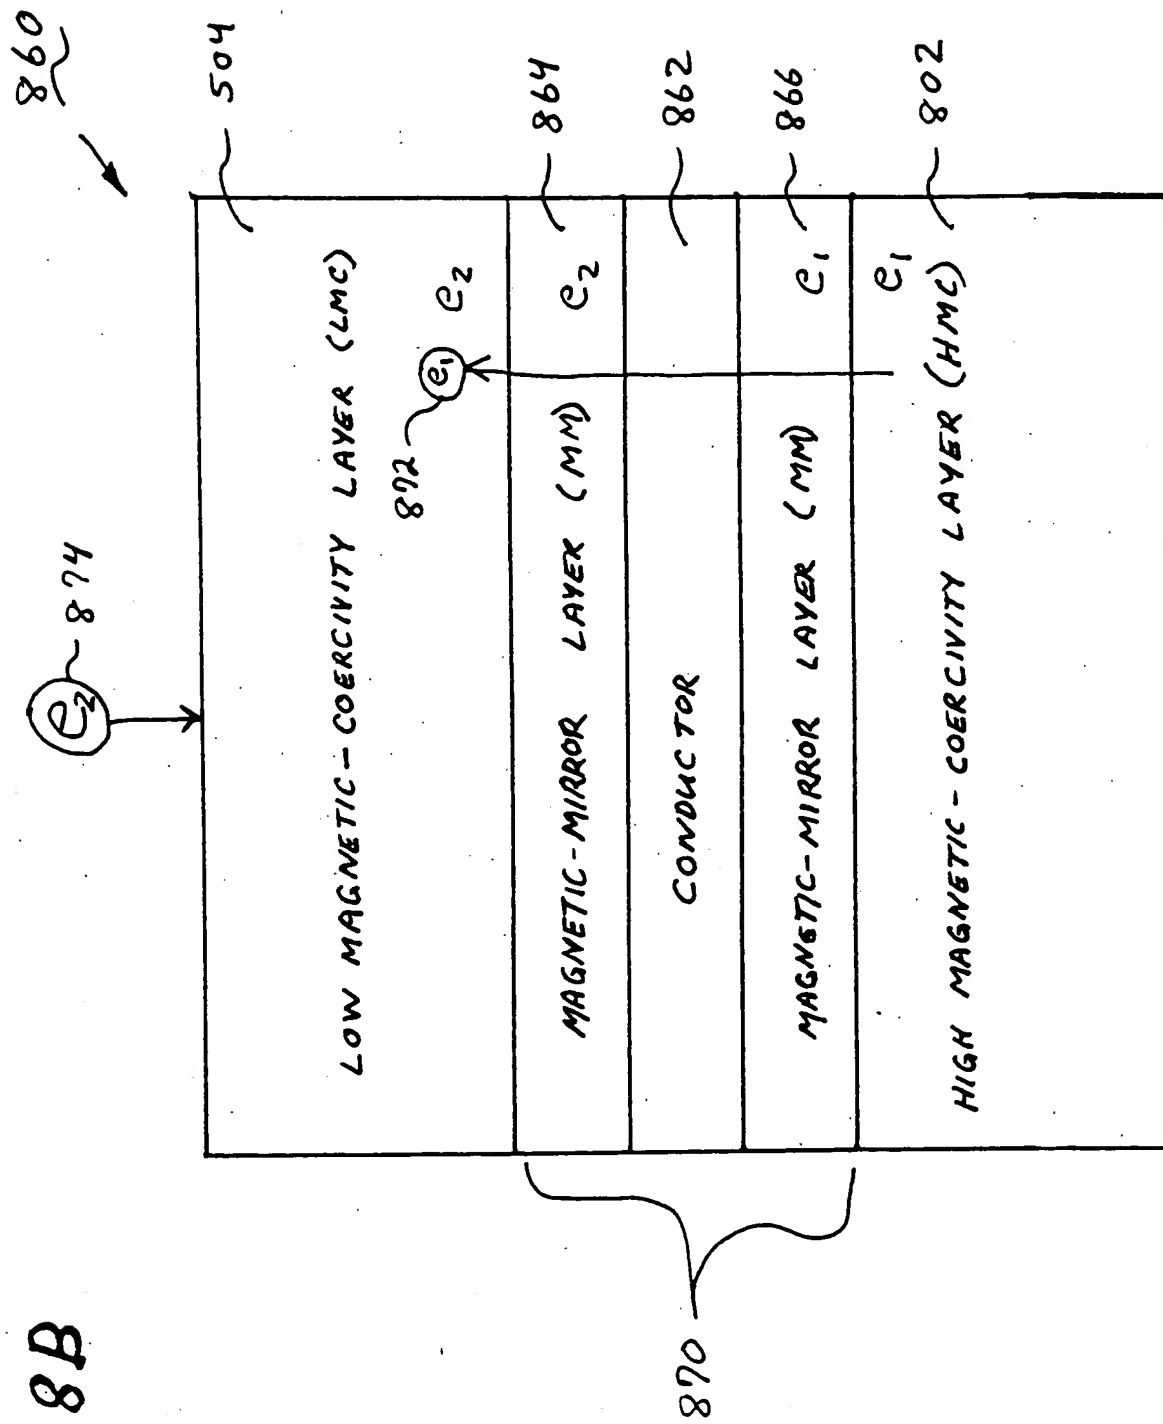 8B
860
e2
874
504
LOW MAGNETIC-COERCIVITY LAYER (LMC)
872
e1
e2
MAGNETIC-MIRROR LAYER (MM)
e2
864
870
CONDUCTOR
862
MAGNETIC-MIRROR LAYER (MM)
e1
866
e1
HIGH MAGNETIC-COERCIVITY LAYER (HMC)
802